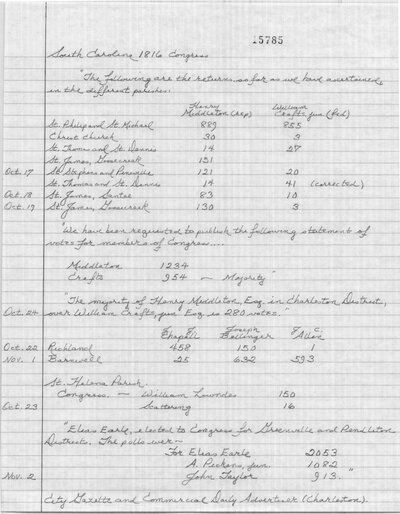 15785
South Carolina 1816 Congress
"The following are the returns, so far as we have ascertained,
in the different parishes:
Henry Middleton (rep) William Crafts, jun (fed)
St. Philip and St. Michael 889 855
Christ Church 30 3
St. Thomas and St. Dennis 14 27
St. James, Goosecreek 151
Oct. 17 St. Stephens and Pineville 121 20
St. Thomas and St. Dennis 14 41 (corrected)
Oct. 18 St. James, Santee 83 10
Oct. 19 St. James, Goosecreek 130 3
"We have been requested to publish the following statement of
votes for members of Congress....
Middleton 1234
Crafts 954 — Majority"
"The majority of Henry Middleton, Esq. in Charleston District,
Oct. 24 over William Crafts, jun Esq. is 280 votes."
Chapell Joseph Bellinger C. Allen
Oct. 22 Richland 458 150 1
Nov. 1 Barnwell 25 632 593
St. Helena Parish.
Congress. — William Lowndes 150
Oct. 23 Scattering 16
"Elias Earle, elected to Congress for Greenville and Pendleton
Districts. The polls were—
For Elias Earle 2053
A. Pickens, jun. 1082
Nov. 2 John Taylor 913."
City Gazette and Commercial Daily Advertiser (Charleston).